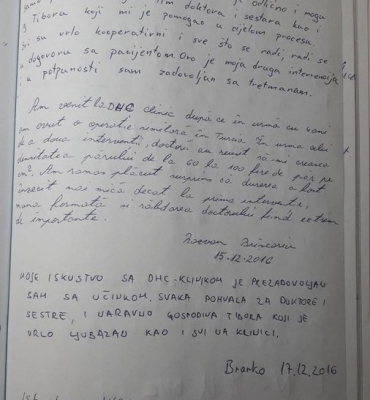 doktora i sestara kao i
g. Tibora koji mi je pomogao u cijelom procesu.
Svi su vrlo kooperativni i sve što se radi, radi se
u dogovoru sa pacijentom. Ovo je moja druga intervencija
i u potpunosti sam zadovoljan sa tretmanom.
Am venit la DHC Clinic după ce în urmă cu
am avut o operatie nereusită în Turcia. În urma celei
de a doua interventi, doctorii au reusit să-mi crească
densitatea părului de la 60 la 100 fire de păr pe
cm². Am rămas plăcut surprins că durerea a fost
mai mică decat la prima interventie,
si răbdarea doctorului fiind extrem
de importante.
15.12.2016
MOJE ISKUSTVO SA DHC-KLINIKOM JE PREZADOVOLJAN
SAM SA UČINKOM, SVAKA POHVALA ZA DOKTORE I
SESTRE, I NARAVNO GOSPODINA TIBORA KOJI JE
VRLO LJUBAZAN KAO I SVI NA KLINICI.
Branko 17.12.2016